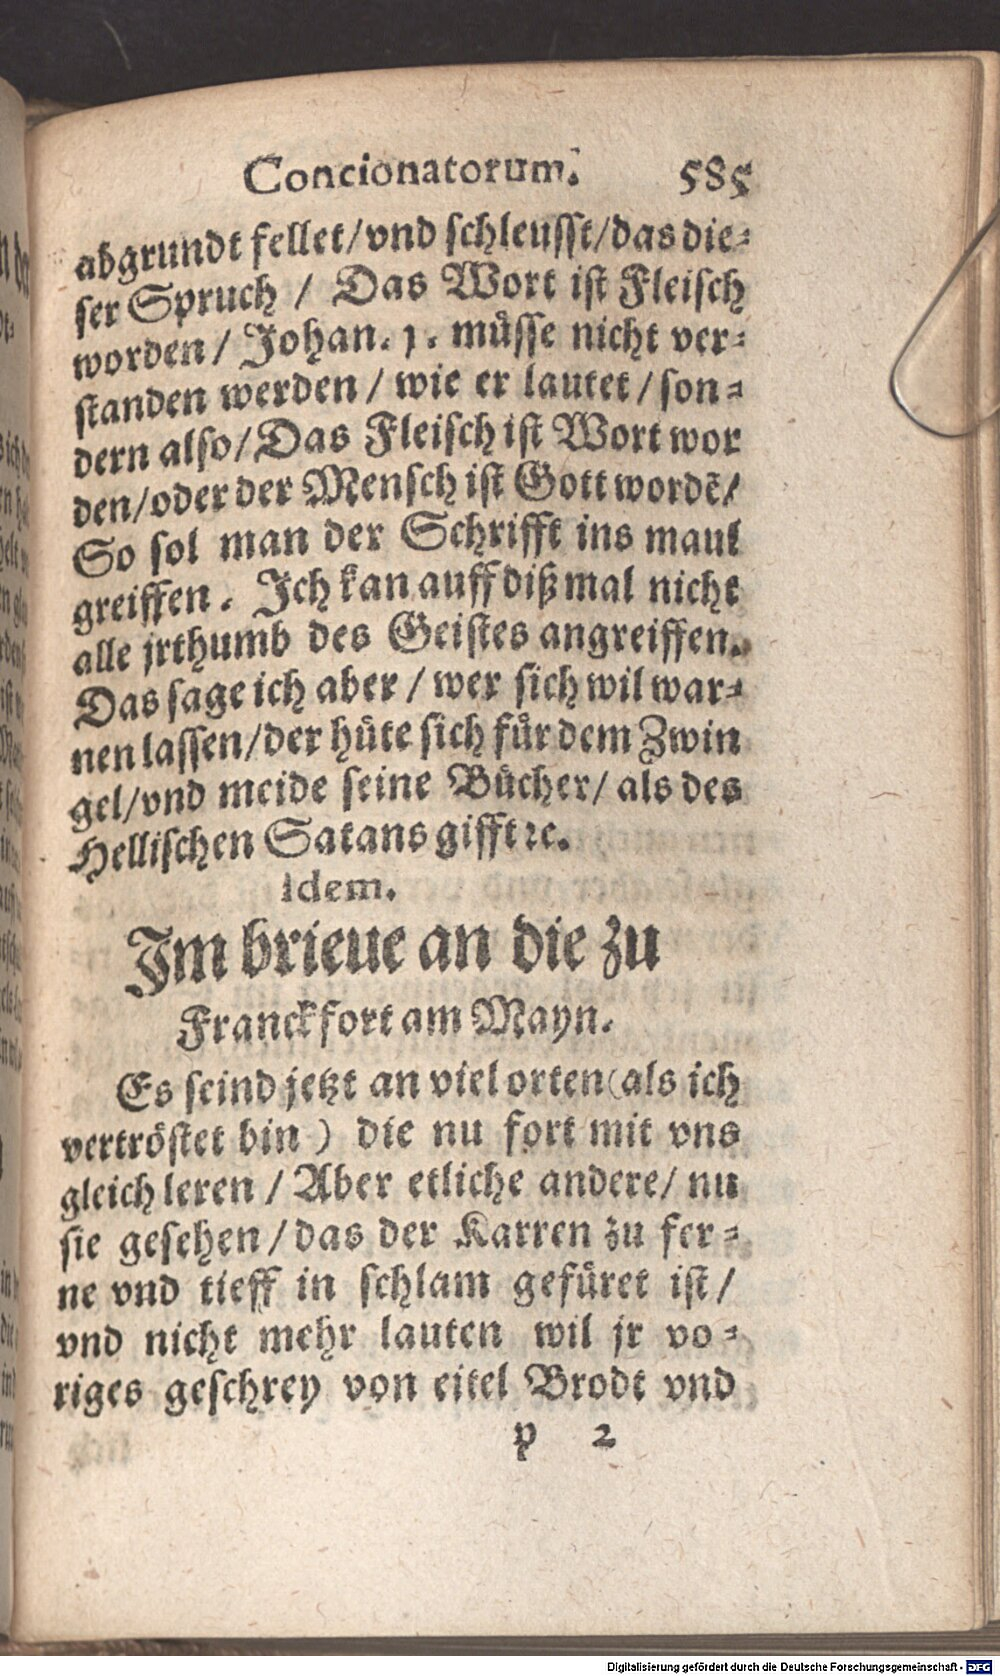 Concionatorum. 585
abgrundt fellet/vnd schleusst/das die-
ser Spruch / Das Wort ist Fleisch
worden / Johan. 1. müsse nicht ver-
standen werden / wie er lautet / son-
dern also/ Das Fleisch ist Wort wor
den/oder der Mensch ist Gott wordē/
So sol man der Schrifft ins maul
greiffen. Ich kan auff diß mal nicht
alle jrthumb des Geistes angreiffen.
Das sage ich aber / wer sich wil war-
nen lassen/der hüte sich für dem Zwin
gel/vnd meide seine Bücher/ als des
Hellischen Satans gifft ꝛc.
Idem.
Im brieue an die zu
Franckfort am Mayn.
Es seind jetzt an viel orten (als ich
vertröstet bin ) die nu fort mit vns
gleich leren / Aber etliche andere/ nu
sie gesehen / das der Karren zu fer-
ne vnd tieff in schlam gefüret ist /
vnd nicht mehr lauten wil jr vo-
riges geschrey von eitel Brodt vnd
p 2
Digitalisierung gefördert durch die Deutsche Forschungsgemeinschaft - DFG